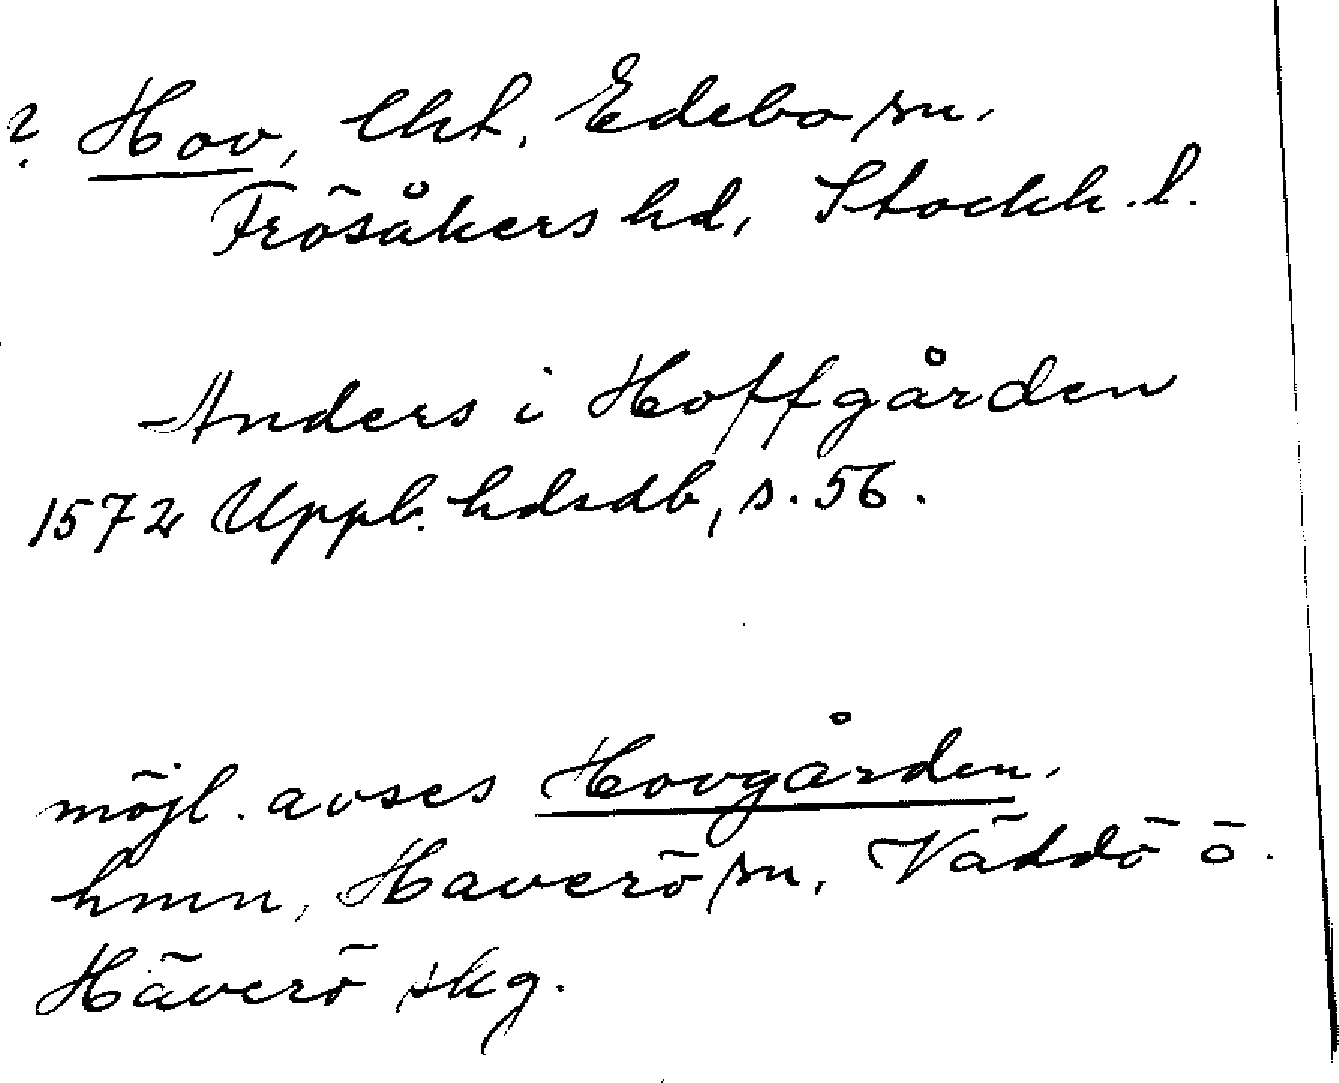 ? Hov, Edebo sn.
Frösåkers hd, Stockh. l.
Anders i Hoffgården
1572 Uppl. hdsdb, s. 56.
möjl. avses Hovgården,
hmn, Haverö sn, Väddö ö.
Häverö skg.